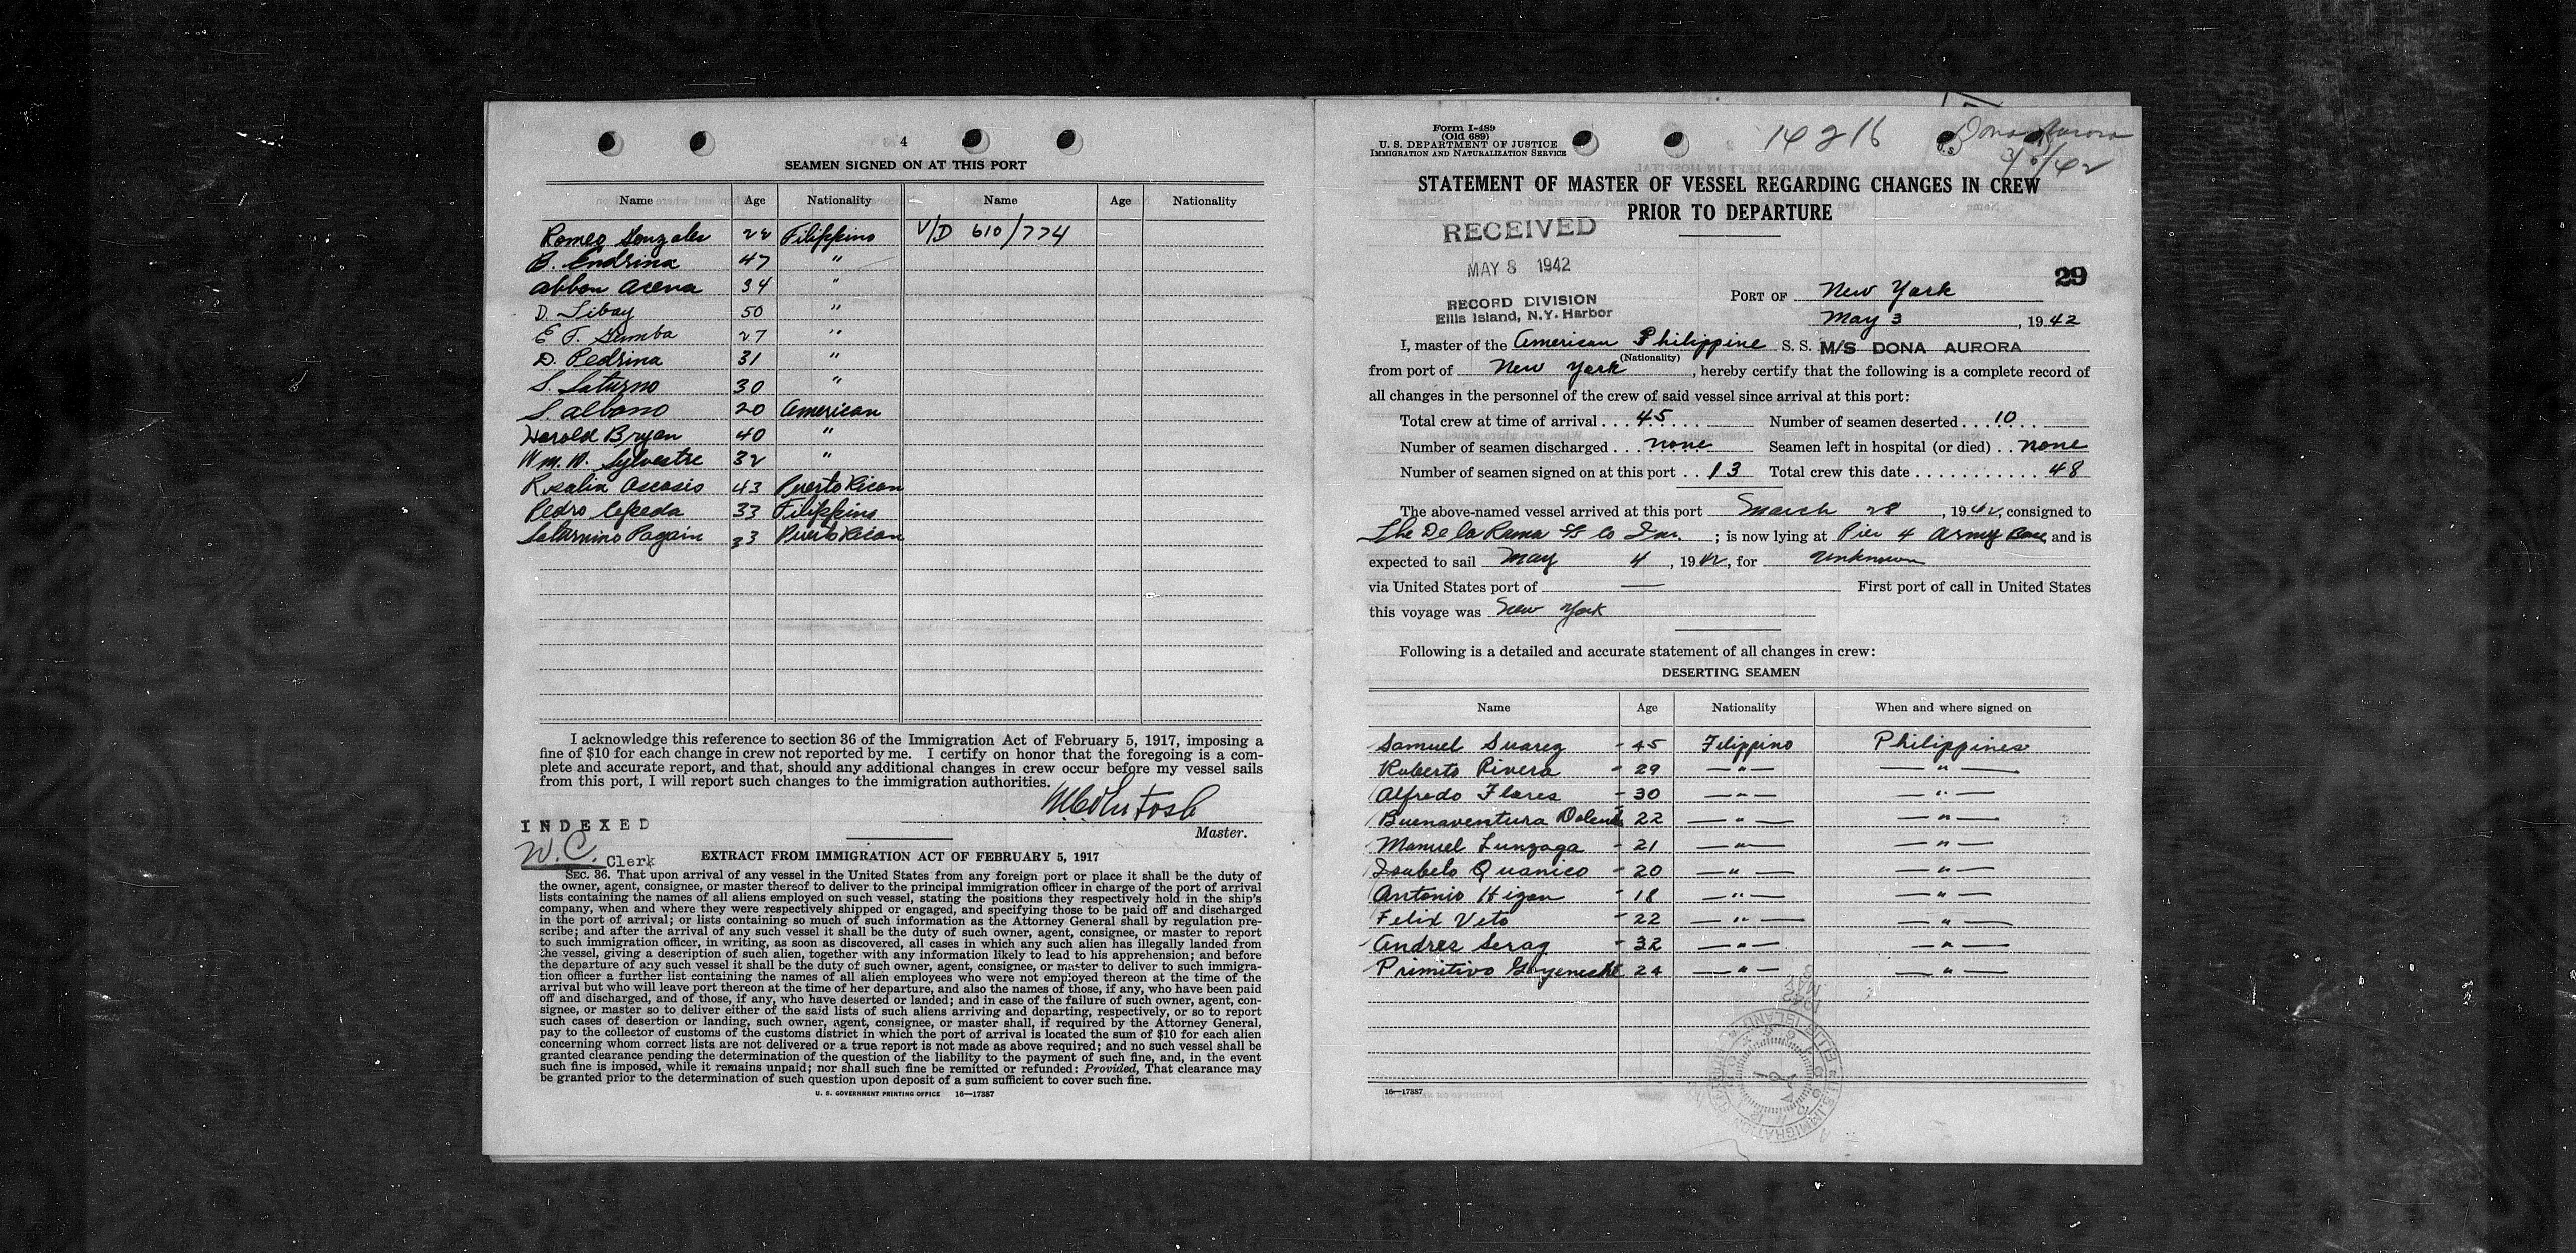 4
SEAMEN SIGNED ON AT THIS PORT
Name Age Nationality Name Age Nationality
Romeo Gonzales 22 Filippino V/D 610/774
B. Endrina 47 "
Abbon Acena 34 "
D. Sibay 50 "
E F. Gumba 27 "
D. Pedrina 31 "
S. Saturno 30 "
S. Albano 20 American
Harold Bryan 40 "
Wm. W. Sylvestre 32 "
Rosalia Ascasio 43 Puerto Rican
Pedro Cepeda 33 Filippino
Saturnino Pagain 33 Puerto Rican
I acknowledge this reference to section 36 of the Immigration Act of February 5, 1917, imposing a
fine of $10 for each change in crew not reported by me. I certify on honor that the foregoing is a com-
plete and accurate report, and that, should any additional changes in crew occur before my vessel sails
from this port, I will report such changes to the immigration authorities.
McIntosh
Master.
INDEXED
W.C. Clerk
EXTRACT FROM IMMIGRATION ACT OF FEBRUARY 5, 1917
SEC. 36. That upon arrival of any vessel in the United States from any foreign port or place it shall be the duty of
the owner, agent, consignee, or master thereof to deliver to the principal immigration officer in charge of the port of arrival
lists containing the names of all aliens employed on such vessel, stating the positions they respectively hold in the ship's
company, when and where they were respectively shipped or engaged, and specifying those to be paid off and discharged
in the port of arrival; or lists containing so much of such information as the Attorney General shall by regulation pre-
scribe; and after the arrival of any such vessel it shall be the duty of such owner, agent, consignee, or master to report
to such immigration officer, in writing, as soon as discovered, all cases in which any such alien has illegally landed from
the vessel, giving a description of such alien, together with any information likely to lead to his apprehension; and before
the departure of any such vessel it shall be the duty of such owner, agent, consignee, or master to deliver to such immigra-
tion officer a further list containing the names of all alien employees who were not employed thereon at the time of the
arrival but who will leave port thereon at the time of her departure, and also the names of those, if any, who have been paid
off and discharged, and of those, if any, who have deserted or landed; and in case of the failure of such owner, agent, con-
signee, or master so to deliver either of the said lists of such aliens arriving and departing, respectively, or so to report
such cases of desertion or landing, such owner, agent, consignee, or master shall, if required by the Attorney General,
pay to the collector of customs of the customs district in which the port of arrival is located the sum of $10 for each alien
concerning whom correct lists are not delivered or a true report is not made as above required; and no such vessel shall be
granted clearance pending the determination of the question of the liability to the payment of such fine, and, in the event
such fine is imposed, while it remains unpaid; nor shall such fine be remitted or refunded: Provided, That clearance may
be granted prior to the determination of such question upon deposit of a sum sufficient to cover such fine.
U. S. GOVERNMENT PRINTING OFFICE 16—17387
Form I-489
(Old 689)
U. S. DEPARTMENT OF JUSTICE
IMMIGRATION AND NATURALIZATION SERVICE
14216
Dona Aurora
STATEMENT OF MASTER OF VESSEL REGARDING CHANGES IN CREW
PRIOR TO DEPARTURE
RECEIVED
MAY 8 1942
RECORD DIVISION
Ellis Island, N.Y. Harbor
29
PORT OF New York
May 3, 1942
I, master of the American Philippine S. S. M/S DONA AURORA
(Nationality)
from port of New York, hereby certify that the following is a complete record of
all changes in the personnel of the crew of said vessel since arrival at this port:
Total crew at time of arrival . . . 45 Number of seamen deserted . . . 10
Number of seamen discharged . . . none Seamen left in hospital (or died) . . none
Number of seamen signed on at this port . . 13 Total crew this date . . . . . . . . . . . 48
The above-named vessel arrived at this port March 28, 1942, consigned to
The De La Rama SS Co Inc. ; is now lying at Pier 4 Army Base and is
expected to sail May 4, 1942, for Unknown
via United States port of — First port of call in United States
this voyage was New York
Following is a detailed and accurate statement of all changes in crew:
DESERTING SEAMEN
Name Age Nationality When and where signed on
Samuel Suarez - 45 Filippino Philippines
Roberto Rivera - 29 — " — — " —
Alfredo Flores - 30 — " — — " —
Buenaventura 22 — " — — " —
Manuel Lunzaga - 21 — " — — " —
Isabelo Quanico - 20 — " — — " —
Antonio Higan - 18 — " — — " —
Felix Veto - 22 — " — — " —
Andres Serag - 32 — " — — " —
Primitivo Goyeneche 24 — " — — " —
16—17387